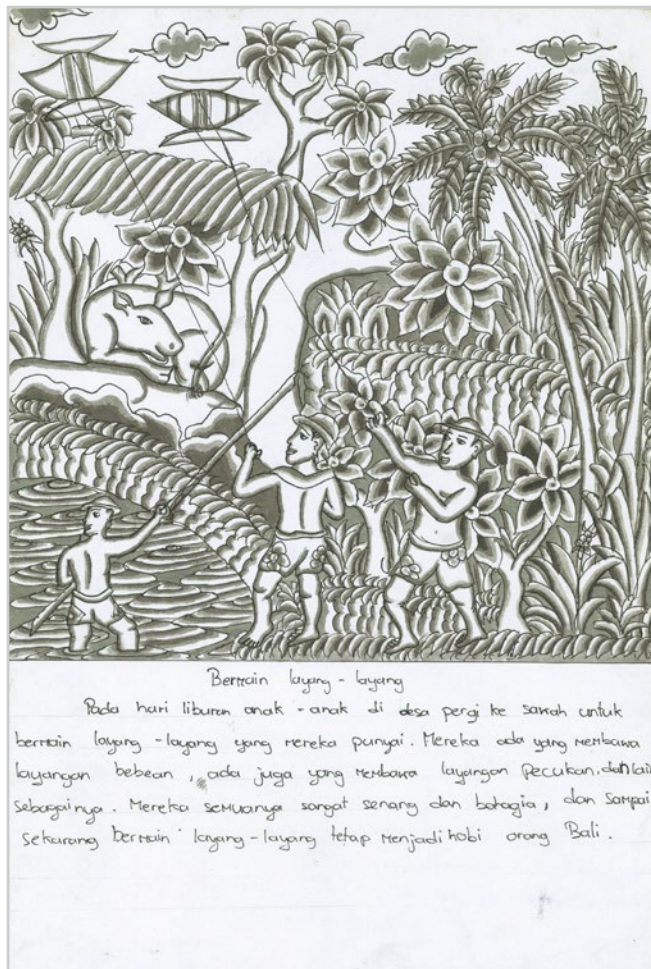 Bermain layang - layang
Pada hari liburan anak - anak di desa pergi ke sawah untuk
bermain layang - layang yang mereka punyai. Mereka ada yang membawa
layangan bebean, ada juga yang membawa layangan pecukan, dan lain
sebagainya. Mereka semuanya sangat senang dan bahagia, dan sampai
sekarang bermain layang-layang tetap menjadi hobi orang Bali.